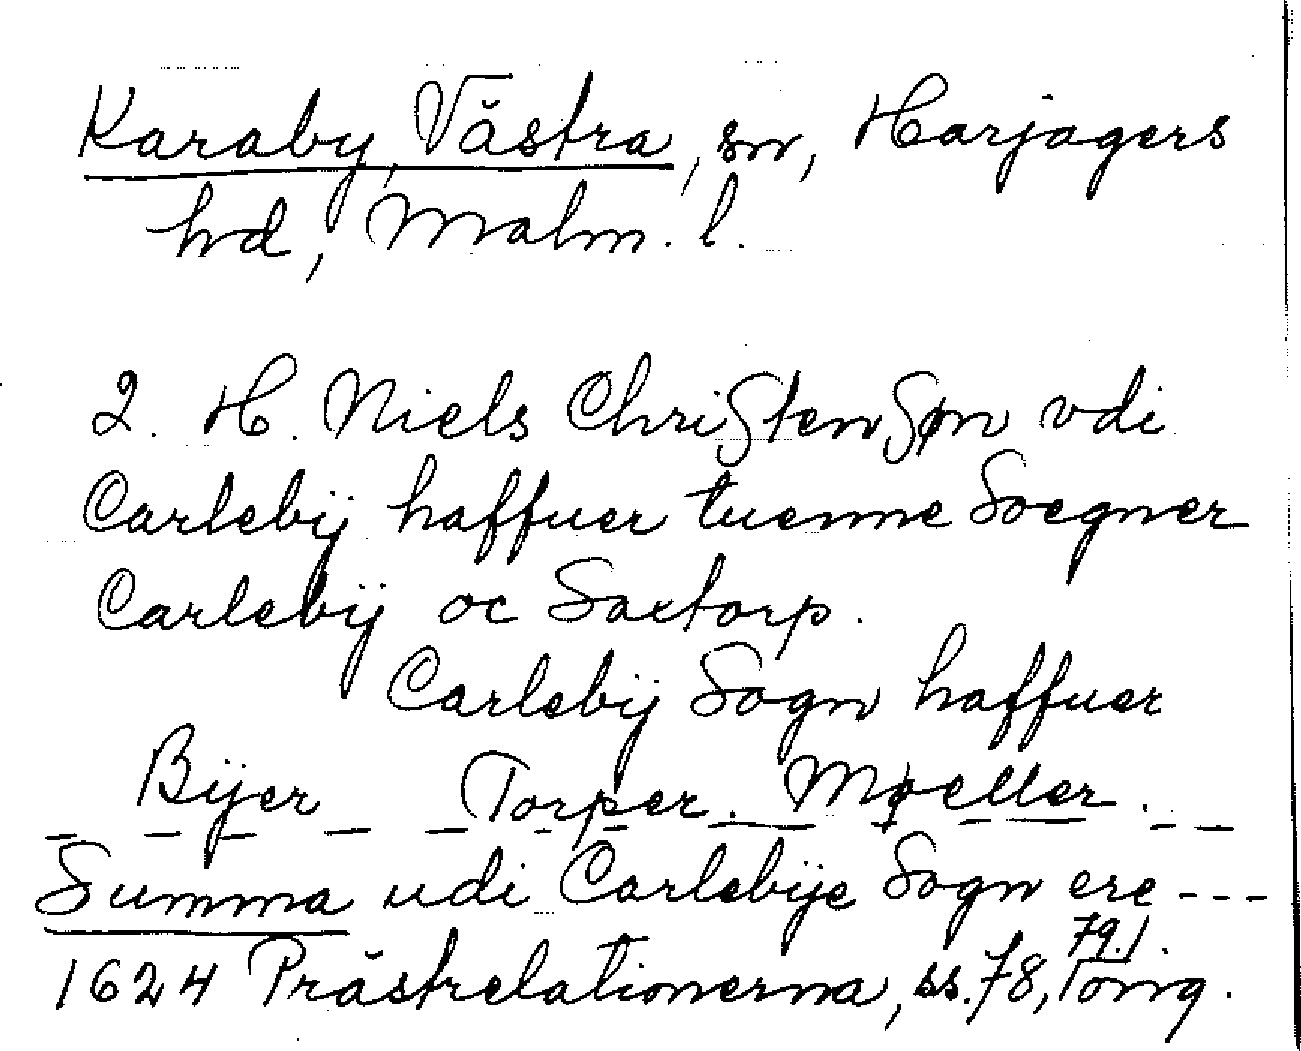 Karaby, Västra, sn, Harjagers
hd, Malm. l.
2. H. Niels Christensøn vdi
Carlebÿ haffuer tuenne Soegner
Carlebÿ oc Saxtorp.
Carlebÿ Sogn haffuer
Bÿer Torper. Møeller.
Summa udi Carlebÿe Sogn ere ---
1624 Prästrelationerna, ss. 78, 79. / orig.